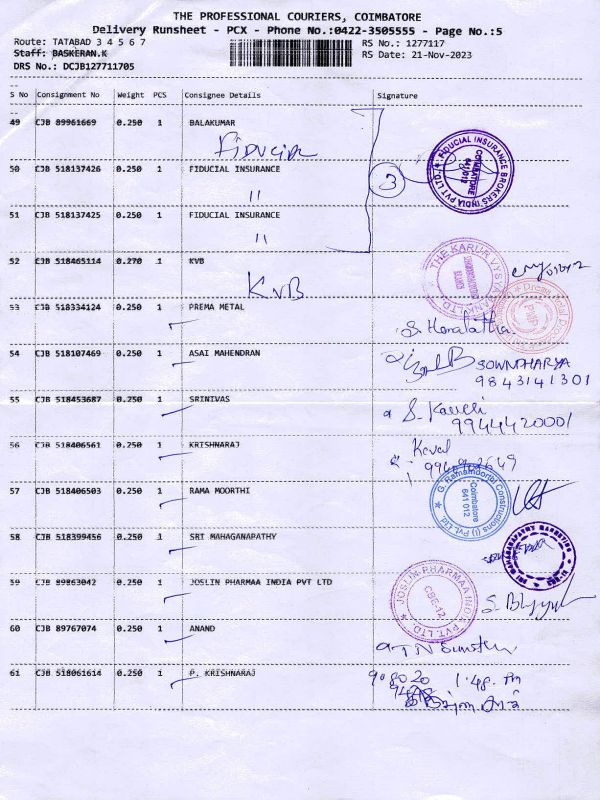 THE PROFESSIONAL COURIERS, COIMBATORE
Delivery Runsheet - PCX - Phone No.:0422-3505555 - Page No.:5
Route: TATABAD 3 4 5 6 7
RS No.: 1277117
Staff: BASKERAN.K
RS Date: 21-Nov-2023
DRS No.: DCJB127711705
S No Consignment No Weight PCS Consignee Details Signature
49 CJB 89961669 0.250 1 BALAKUMAR
Fiducial
50 CJB 518137426 0.250 1 FIDUCIAL INSURANCE
"
3
FIDUCIAL INSURANCE BROKERS INDIA PVT LTD. * COIMBATORE 641 012
51 CJB 518137425 0.250 1 FIDUCIAL INSURANCE
"
52 CJB 518465114 0.270 1 KVB
KVB
THE KARUR VYSYA BANK LTD.
53 CJB 518334124 0.250 1 PREMA METAL
S. Hemalatha
54 CJB 518107469 0.250 1 ASAI MAHENDRAN
SOWNTHARYA
9843141301
55 CJB 518453687 0.250 1 SRINIVAS
9944420001
56 CJB 518406561 0.250 1 KRISHNARAJ
57 CJB 518406503 0.250 1 RAMA MOORTHI
G. Ramamoorthi Constructions (I) Pvt. Ltd. * Coimbatore 641 012
58 CJB 518399456 0.250 1 SRI MAHAGANAPATHY
SRI MAHAGANAPATHY MARKETING
59 CJB 89863042 0.250 1 JOSLIN PHARMAA INDIA PVT LTD
JOSLIN PHARMAA INDIA PVT. LTD. * CBE-12
60 CJB 89767074 0.250 1 ANAND
61 CJB 518061614 0.250 1 P. KRISHNARAJ
1.48. Pm